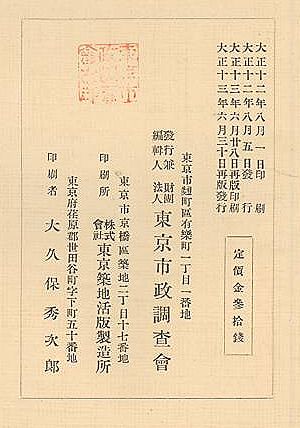 大正十二年八月一日印刷
大正十二年八月五日發行
大正十三年六月廿八日再版印刷
大正十三年六月三十日再版發行
定價金參拾錢
東京市麴町區有樂町一丁目一番地
發行兼編輯人 財團法人 東京市政調查會
東京市京橋區築地二丁目十七番地
印刷所 株式會社 東京築地活版製造所
東京府在原郡世田谷町字下町五十番地
印刷者 大久保秀次郎